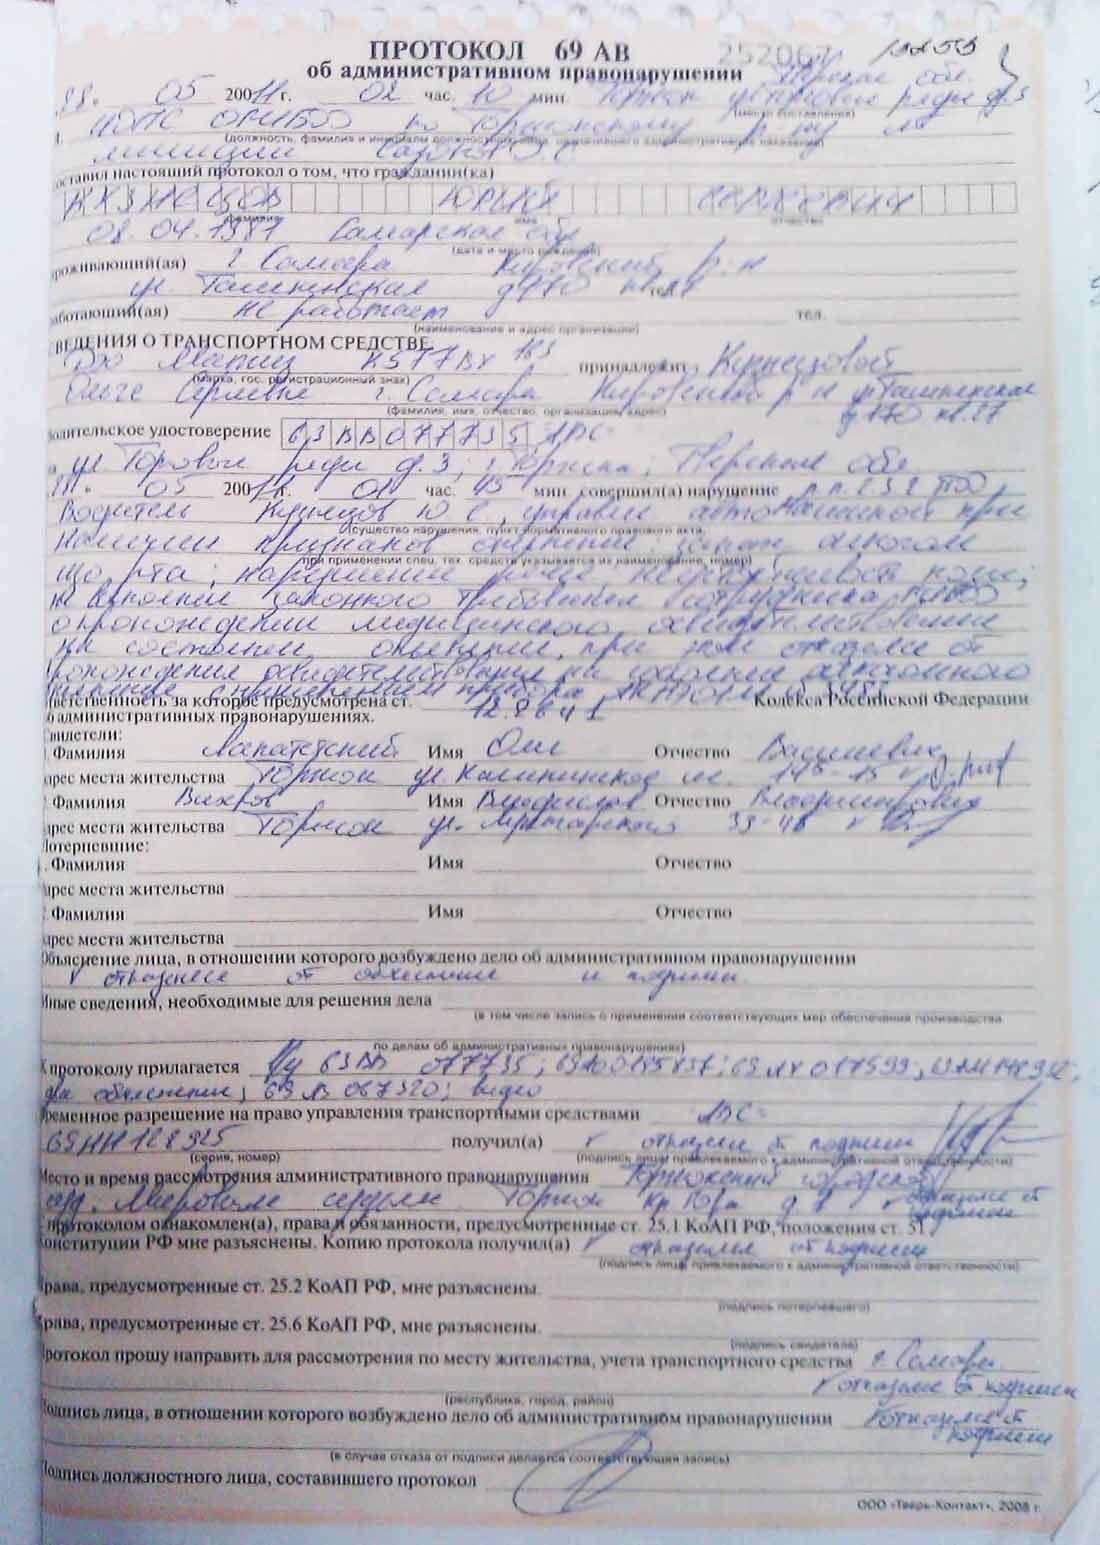 ПРОТОКОЛ 69 АВ 252067
об административном правонарушении
05 2011 г. 02 час. 10 мин. Торжок
(место составления)
ИДПС ОГИБДД по Торжокскому р-ну
(должность, фамилия и инициалы должностного
милиции
составил настоящий протокол о том, что гражданин(ка)
фамилия имя отчество
08.04.1987 Самарская обл
(дата и место рождения)
проживающий(ая) г. Самара Кировский р-н
ул. Ташкентская
работающий(ая) не работает тел.
(наименование и адрес организации)
СВЕДЕНИЯ О ТРАНСПОРТНОМ СРЕДСТВЕ:
Дэо Матиз К577ВХ 163 принадлежит Кузнецовой
(марка, гос. регистрационный знак)
Ольге Сергеевне г. Самара Кировский р-н ул Ташкентская
(фамилия, имя, отчество, организация, адрес)
водительское удостоверение 63ВВ077735
ул. Торговые ряды д. 3; г. Торжка; Тверской обл
05 2011 г. 01 час. 45 мин. совершил(а) нарушение п.п. 2.3.2 ПДД
Водитель Кузнецов Ю.С. управлял автомашиной при
(существо нарушения, пункт нормативного правового акта,
наличии признаков опьянения: запах алкоголя
при применении спец. тех. средств указывается их наименование, номер)
изо рта; нарушение речи, неустойчивость позы;
не выполнил законного требования сотрудника ГИБДД
о прохождении медицинского освидетельствования
на состояние опьянения, при этом отказался от
прохождения освидетельствования на состояние алкогольного
опьянения с применением прибора
ответственность за которое предусмотрена ст. 12.26 ч 1 Кодекса Российской Федерации
об административных правонарушениях.
Свидетели:
1. Фамилия Имя Олег Отчество Васильевич
Адрес места жительства Торжок ул. Калининское ш.
2. Фамилия Вихров Имя Владислав Отчество Владимирович
Адрес места жительства Торжок ул.
Потерпевшие:
1. Фамилия Имя Отчество
Адрес места жительства
2. Фамилия Имя Отчество
Адрес места жительства
Объяснение лица, в отношении которого возбуждено дело об административном правонарушении
отказался от объяснения и подписи
Иные сведения, необходимые для решения дела
(в том числе запись о применении соответствующих мер обеспечения производства
по делам об административных правонарушениях)
К протоколу прилагается в/у 63ВВ 077735;
объяснения; видео
Временное разрешение на право управления транспортными средствами
69НН128925 получил(а) отказался от подписи
(серия, номер) (подпись лица, привлекаемого к административной ответственности)
Место и время рассмотрения административного правонарушения Торжокский городской
суд. Мировым судьям Торжок отказался от подписи
С протоколом ознакомлен(а), права и обязанности, предусмотренные ст. 25.1 КоАП РФ, положения ст. 51
Конституции РФ мне разъяснены. Копию протокола получил(а) отказался от подписи
(подпись лица, привлекаемого к административной ответственности)
Права, предусмотренные ст. 25.2 КоАП РФ, мне разъяснены.
(подпись потерпевшего)
Права, предусмотренные ст. 25.6 КоАП РФ, мне разъяснены.
(подпись свидетеля)
Протокол прошу направить для рассмотрения по месту жительства, учета транспортного средства г. Самара
отказался от подписи
(республика, город, район)
Подпись лица, в отношении которого возбуждено дело об административном правонарушении отказался от
подписи
(в случае отказа от подписи делается соответствующая запись)
Подпись должностного лица, составившего протокол
ООО «Тверь-Контакт», 2008 г.